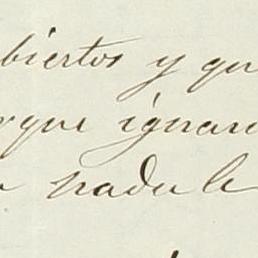 biertos y qu
rque ignar
nada le